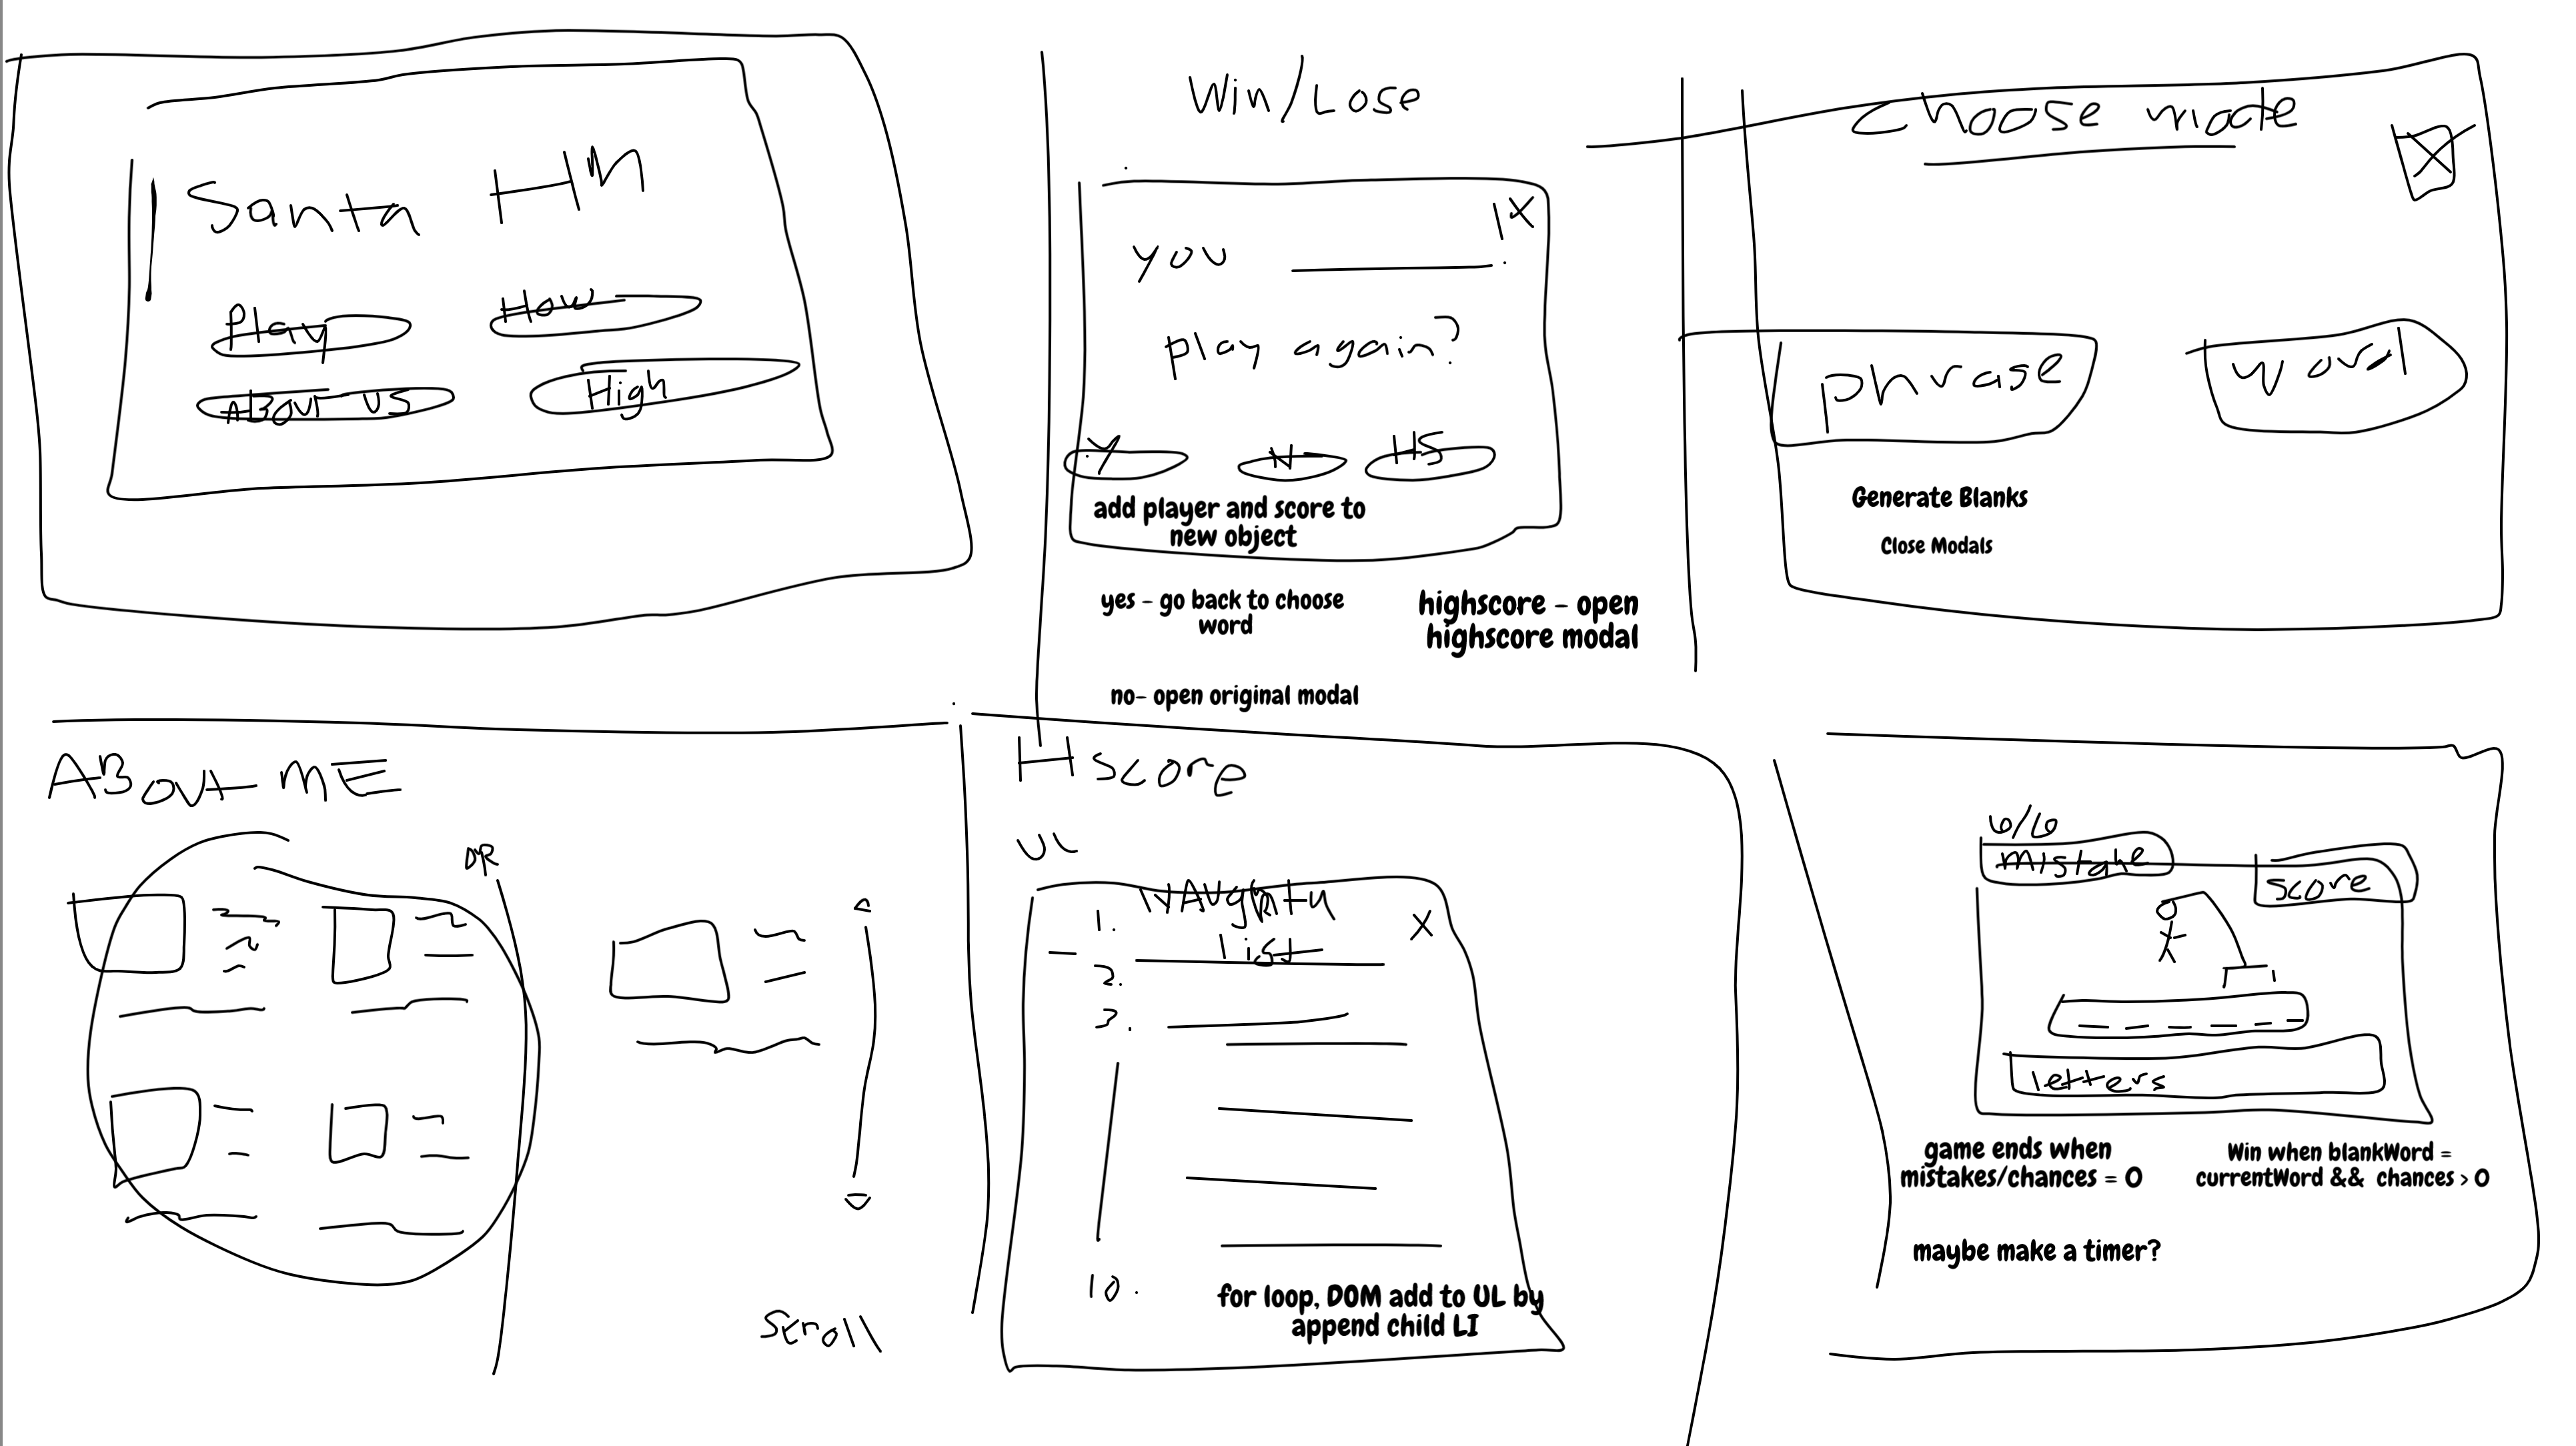 Santa HM
Play
How
ABOUT US
High
Win/Lose
X
you ______.
play again?
Y
N
HS
add player and score to
new object
yes - go back to choose
word
highscore - open
highscore modal
no- open original modal
choose mode
phrase
word
Generate Blanks
Close Modals
ABout ME
OR
scroll
H score
UL
NAughty
list
X
1.
2.
3.
10.
for loop, DOM add to UL by
append child LI
6/6
mistake
score
letters
game ends when
mistakes/chances = 0
Win when blankWord =
currentWord && chances > 0
maybe make a timer?